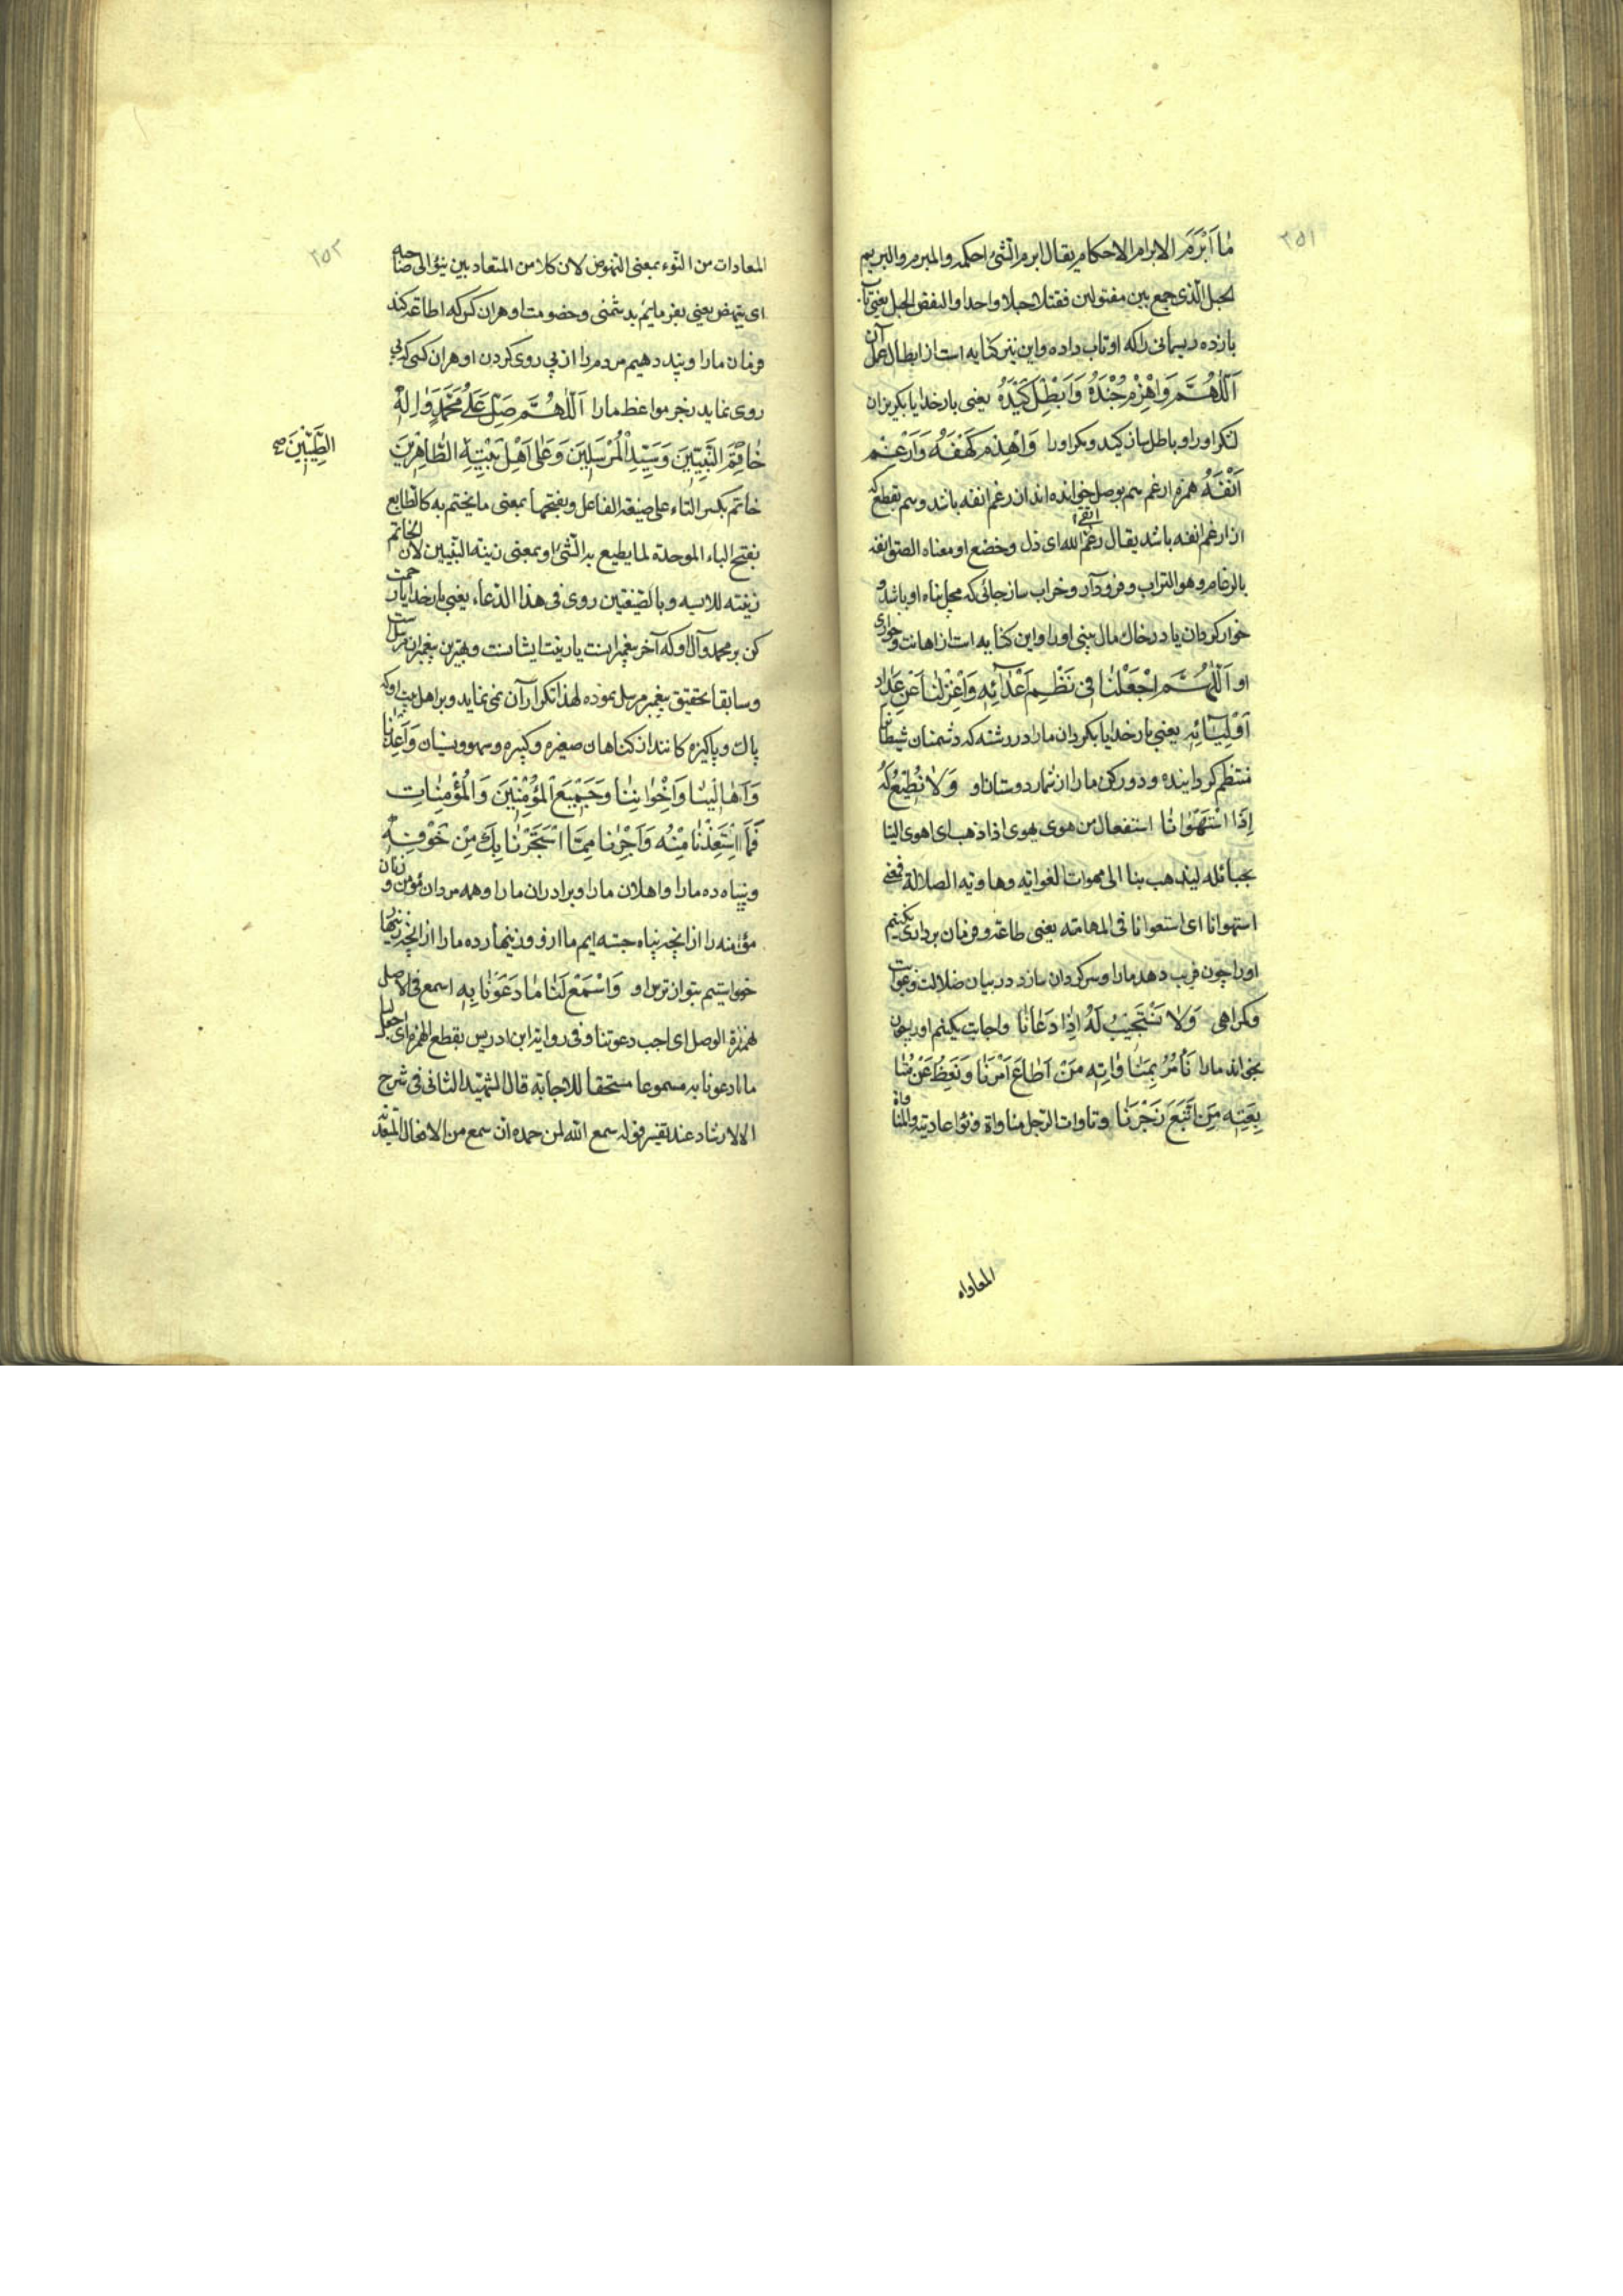 ٣٥١
مٰا اَبْرَمَ الابرام الاحكام يقال ابرم الشئ احكمه والمبرم والبريم
الحبل الذى جمع بين مفتولين ففتلا حبلا واحدا والنقض الحل يعنى تاب
باز ده ريسمانى را كه او تاب داده و اين نيز كنايه است از ابطال عمل آن
اَللّٰهُمَّ وَاهْزِمْ جُنْدَهُ وَاَبْطِلْ كَيْدَهُ يعنى بار خدايا بگريزان
لشكر او را و باطل ساز كيد و مكر او را وَاهْدِمْ كَهْفَهُ وَارْغِمْ
اَنْفَهُ همزه ارغم هم بوصل خوانده اند از رغم انفه باشد و هم بقطع كه
از ارغم انفه باشد يقال رغم الله انفه اى ذل و خضع او معناه الصق انفه
بالرغام و هو التراب و فرود آر و خراب ساز جائى كه محل پناه او باشد و
خوار گردان يا در خاك مال بينى او را و اين كنايه است از اهانت و خوارى
او اَللّٰهُمَّ اجْعَلْنٰا فى نَظْمِ اَعْدٰائِهِ وَاعْزِلْنٰا عَنْ عِدٰادِ
اَوْلِيٰائِهِ يعنى بار خدايا بگردان ما را در رشته كه دشمنان شيطان
منتظم گردايند و دور كن ما را از شمار دوستان او وَلاٰ نُطِيعُ لَهُ
اِذَا اسْتَهْوٰانٰا استفعال من هوى يهوى اذا ذهب اى اهوى الينا
بحبائله ليذهب بنا الى مهوات الغواية وهاوية الضلالة فمعنى
استهوانا اى استغوانا فى المهامه يعنى طاعت و فرمان بردارى نكنيم
او را چون فريب دهد ما را و سرگردان سازد در بيابان ضلالت و غوايت
و گمراهى وَلاٰ نَسْتَجِيبُ لَهُ اِذٰا دَعٰانٰا و اجابت نكنيم او را چون
بخواند ما را نَأْمُرُ بِمُنٰاوٰاتِهِ مَنْ اَطٰاعَ اَمْرَنٰا وَنَعِظُ عَنْ مُتٰا
بِعَتِهِ مَنِ اتَّبَعَ زَجْرَنٰا و ناوات الرجل مناواة و نواء عاديته والمناواة
المعاداه
٣٥٢
المعادات من النوء بمعنى النهوض لان كلا من المتعاديين ينوء الى صاحبه
اى ينهض يعنى بفرمايم بدشمنى و خصومت او هر آن كس كه اطاعه كند
فرمان ما را و پند دهيم مردم را از پى روى كردن او هر آن كسى كه پى
روى نمايد زجر مواعظ ما را اَللّٰهُمَّ صَلِّ عَلٰى مُحَمَّدٍ وَاٰلِهِ
خٰاتَمِ النَّبِيّينَ وَسَيِّدِ الْمُرْسَلينَ وَعَلٰى اَهْلِ بَيْتِهِ الطّٰاهِرينَ
الطَّيِّبِينَ صح
خاتم بكسر التاء على صيغة الفاعل و بفتحها بمعنى ما يختم به كالطابع
بفتح الباء الموحدة لما يطبع به الشئ او بمعنى زينة النبيين لان الخاتم
زينته للابسه و بالصيغتين روى فى هذا الدعاء يعنى بار خدايا رحمت
كن بر محمد و آل او كه آخر پيغمبرانست يا زينت ايشانست و بهترين پيغمبران مرسل است
و سابقا تحقيق پيغمبر مرسل نموده لهذا تكرار آن نمى نمايد و بر اهل بيت او كه
پاك و پاكيزه كانند از گناهان صغيره و كبيره و سهو و نسيان وَاَعِذْنٰا
وَاَهٰالِينٰا وَاِخْوٰانِنٰا وَجَمِيعَ الْمُؤْمِنِينَ وَالْمُؤْمِنٰاتِ
مِمَّا اسْتَعَذْنٰا مِنْهُ وَاَجِرْنٰا مِمَّا اسْتَجَرْنٰا بِكَ مِنْ خَوْفِهِ
و پناه ده ما را و اهلان ما را و برادران ما را و همه مردان مؤمن و زنان
مؤمنه را از آنچه پناه جسته ايم ما از او و زينهار ده ما را از آنچه زينهار
خواستيم بتو از ترس او وَاسْمَعْ لَنٰا مٰا دَعَوْنٰا بِهِ اسمع فى الاصل
بهمزة الوصل اى اجب دعوتنا و فى رواية ابن ادريس بقطع الهمزه اى اجعل
ما دعونا به مسموعا مستحقا للاجابة قال الشهيد الثانى فى شرح
الارشاد عند تفسير قوله سمع الله لمن حمده ان سمع من الافعال المتعدية